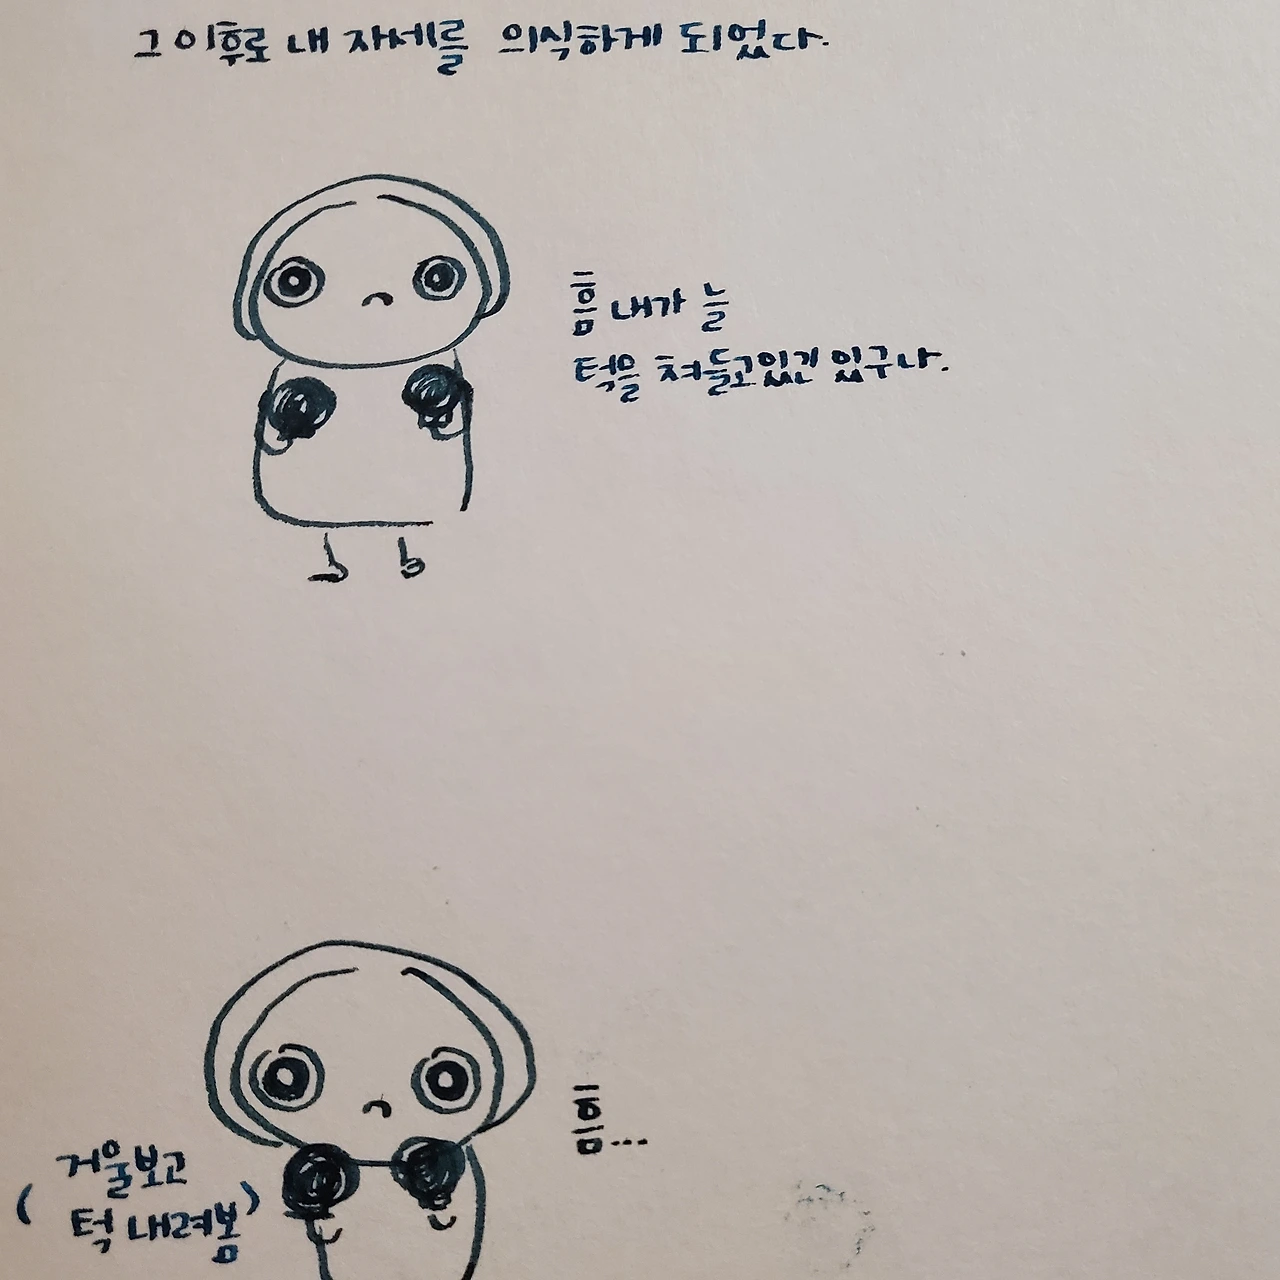 그 이후로 내 자세를 의식하게 되었다.
흠 내가 늘
턱을 쳐들고있긴 있구나.
흠...
거울보고
( 턱 내려봄 )